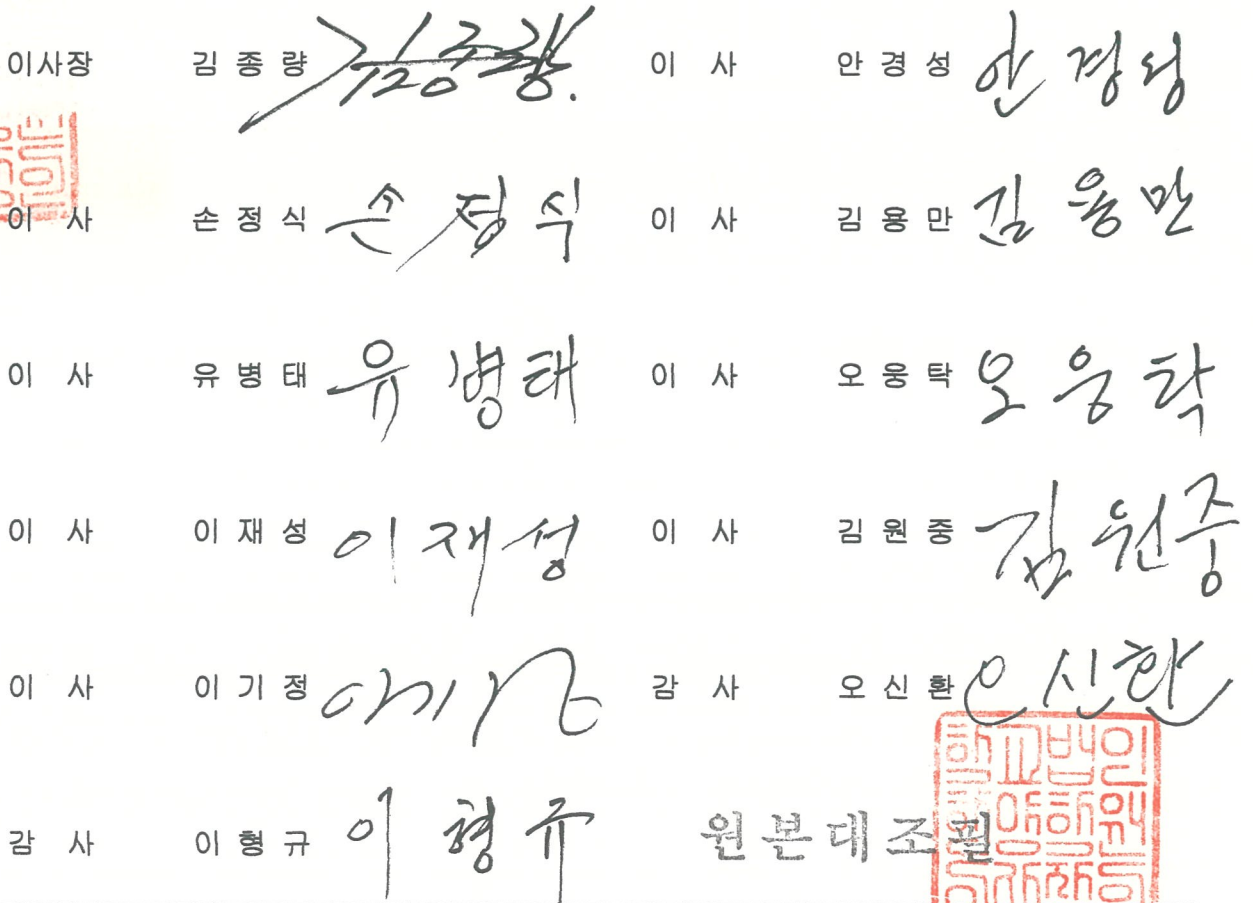 이사장 김종량 김종량. 이 사 안경성 안경성
이 사 손정식 손정식 이 사 김용만 김용만
이 사 유병태 유병태 이 사 오웅탁 오웅탁
이 사 이재성 이재성 이 사 김원중 김원중
이 사 이기정 감 사 오신환 오신환
감 사 이형규 이형규 원본대조필